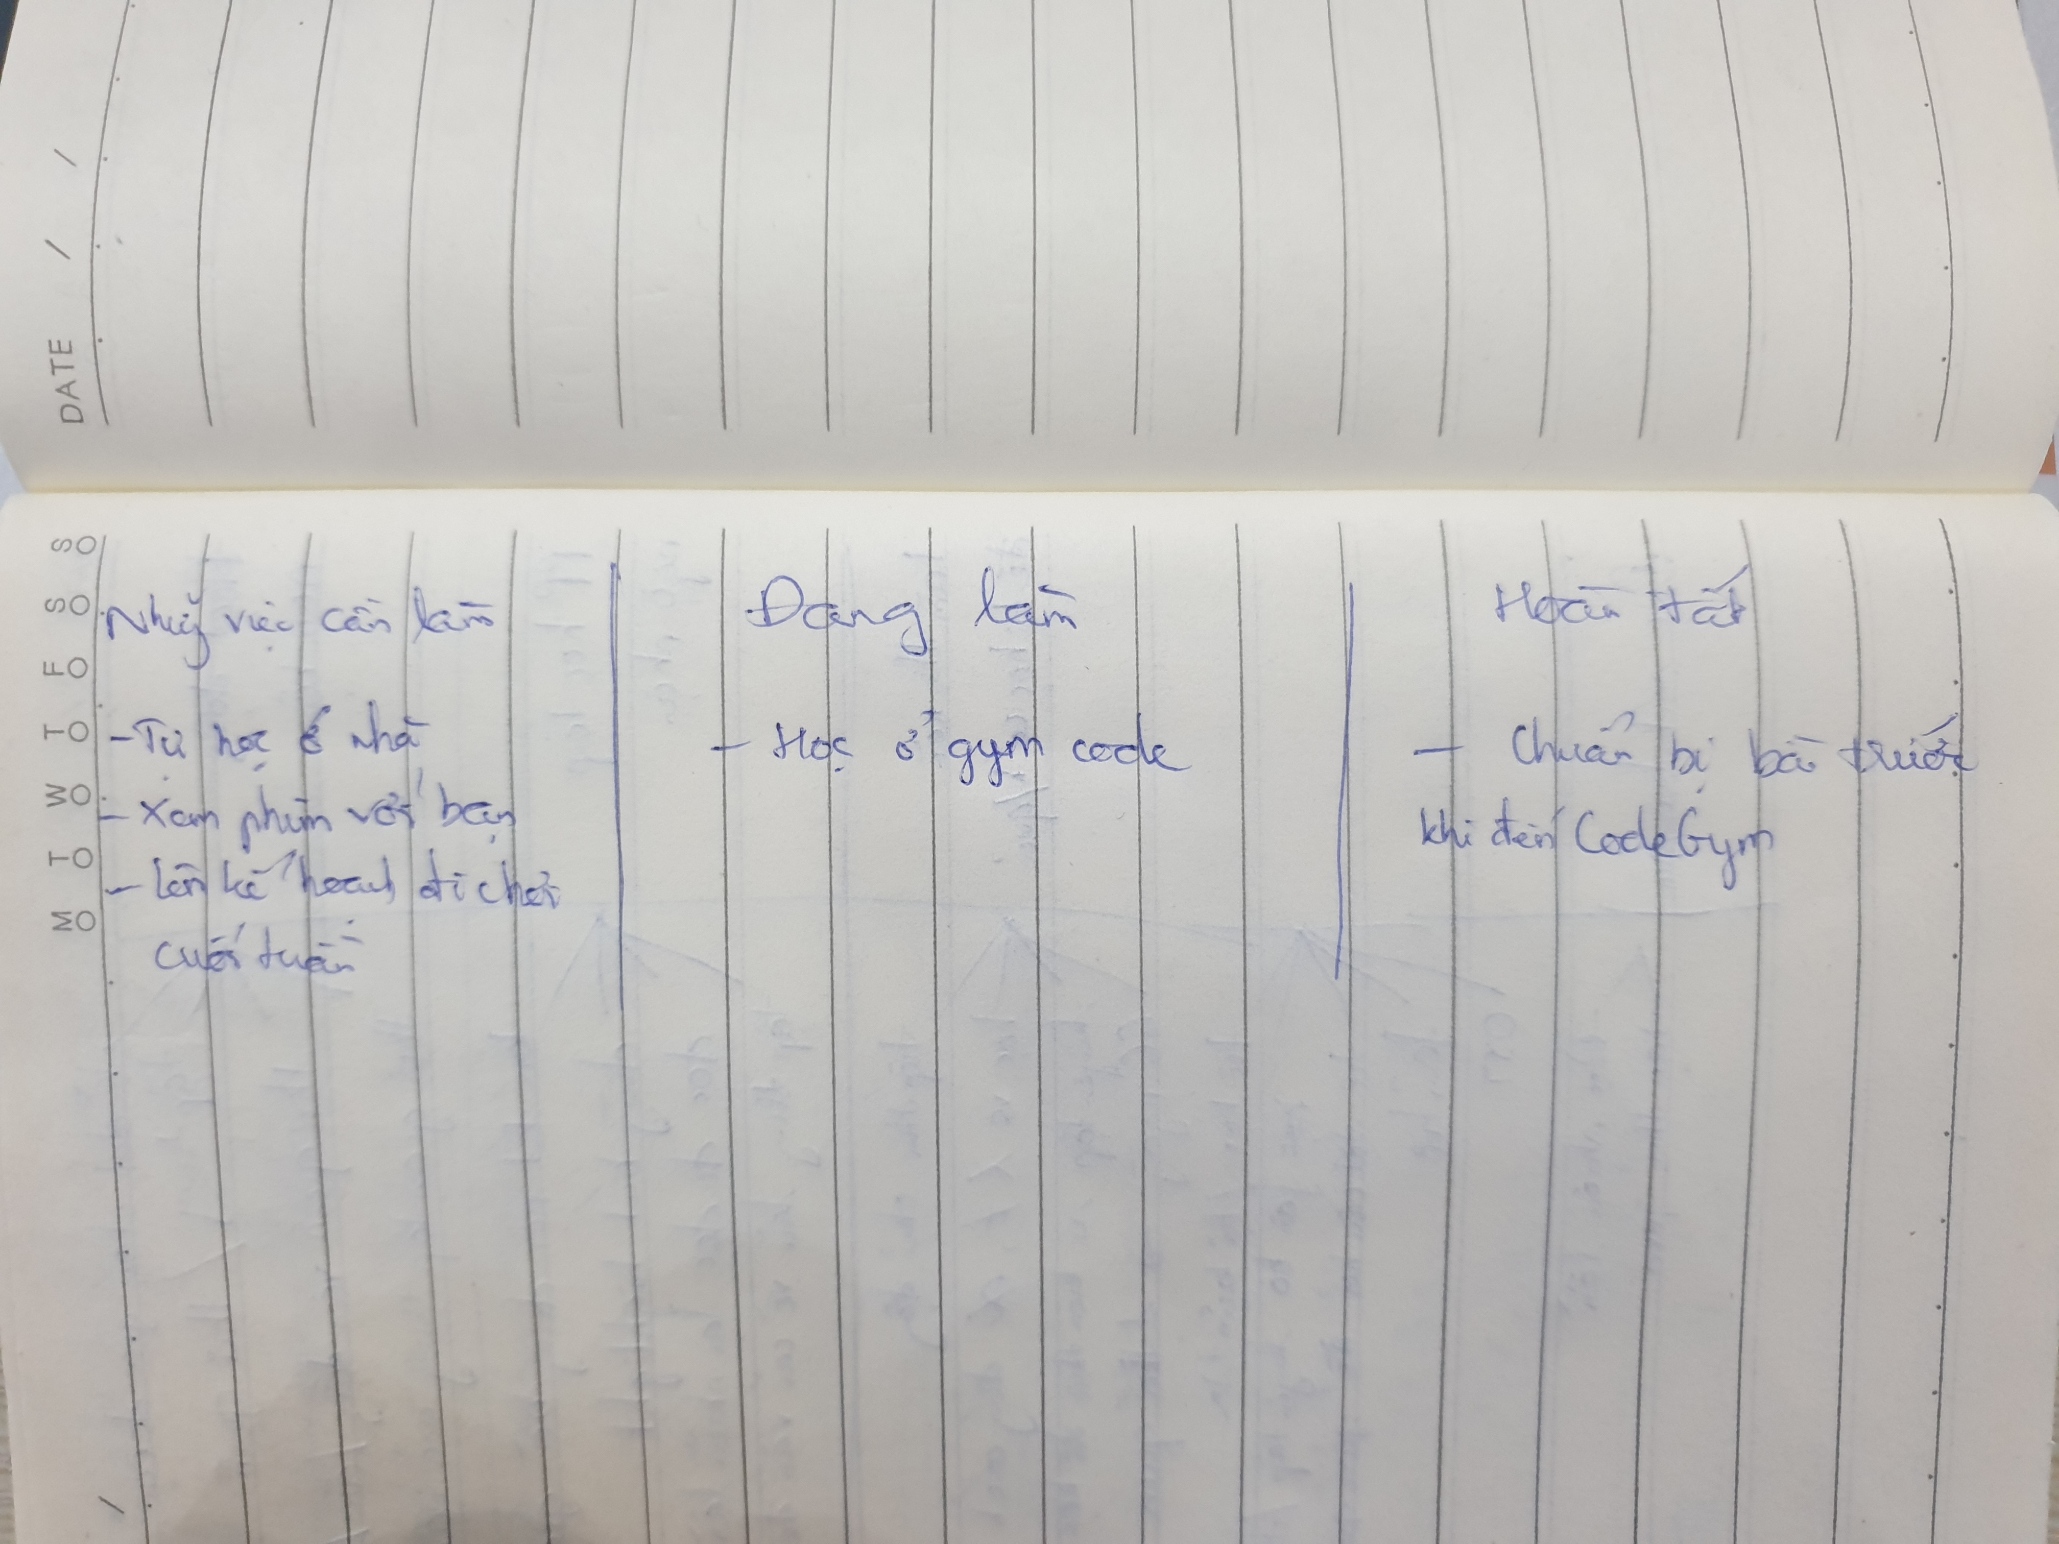 DATE / /
M T W T F S S
/
Những việc cần làm
- Tự học ở nhà
- Xem phim với bạn
- Lên kế hoạch đi chơi
cuối tuần
Đang làm
- Học ở gym code
Hoàn tất
- Chuẩn bị bài trước
khi đến CodeGym